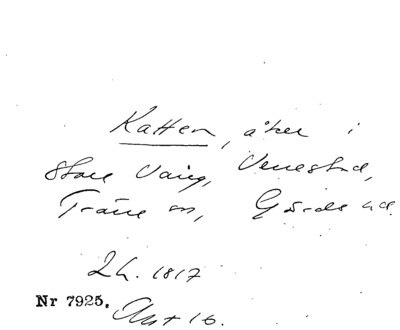 Katten, åker i
Store Vång, Venestad,
Träne sn, Gärds hd.
Lh. 1817
Nr 7925. Akt 16.